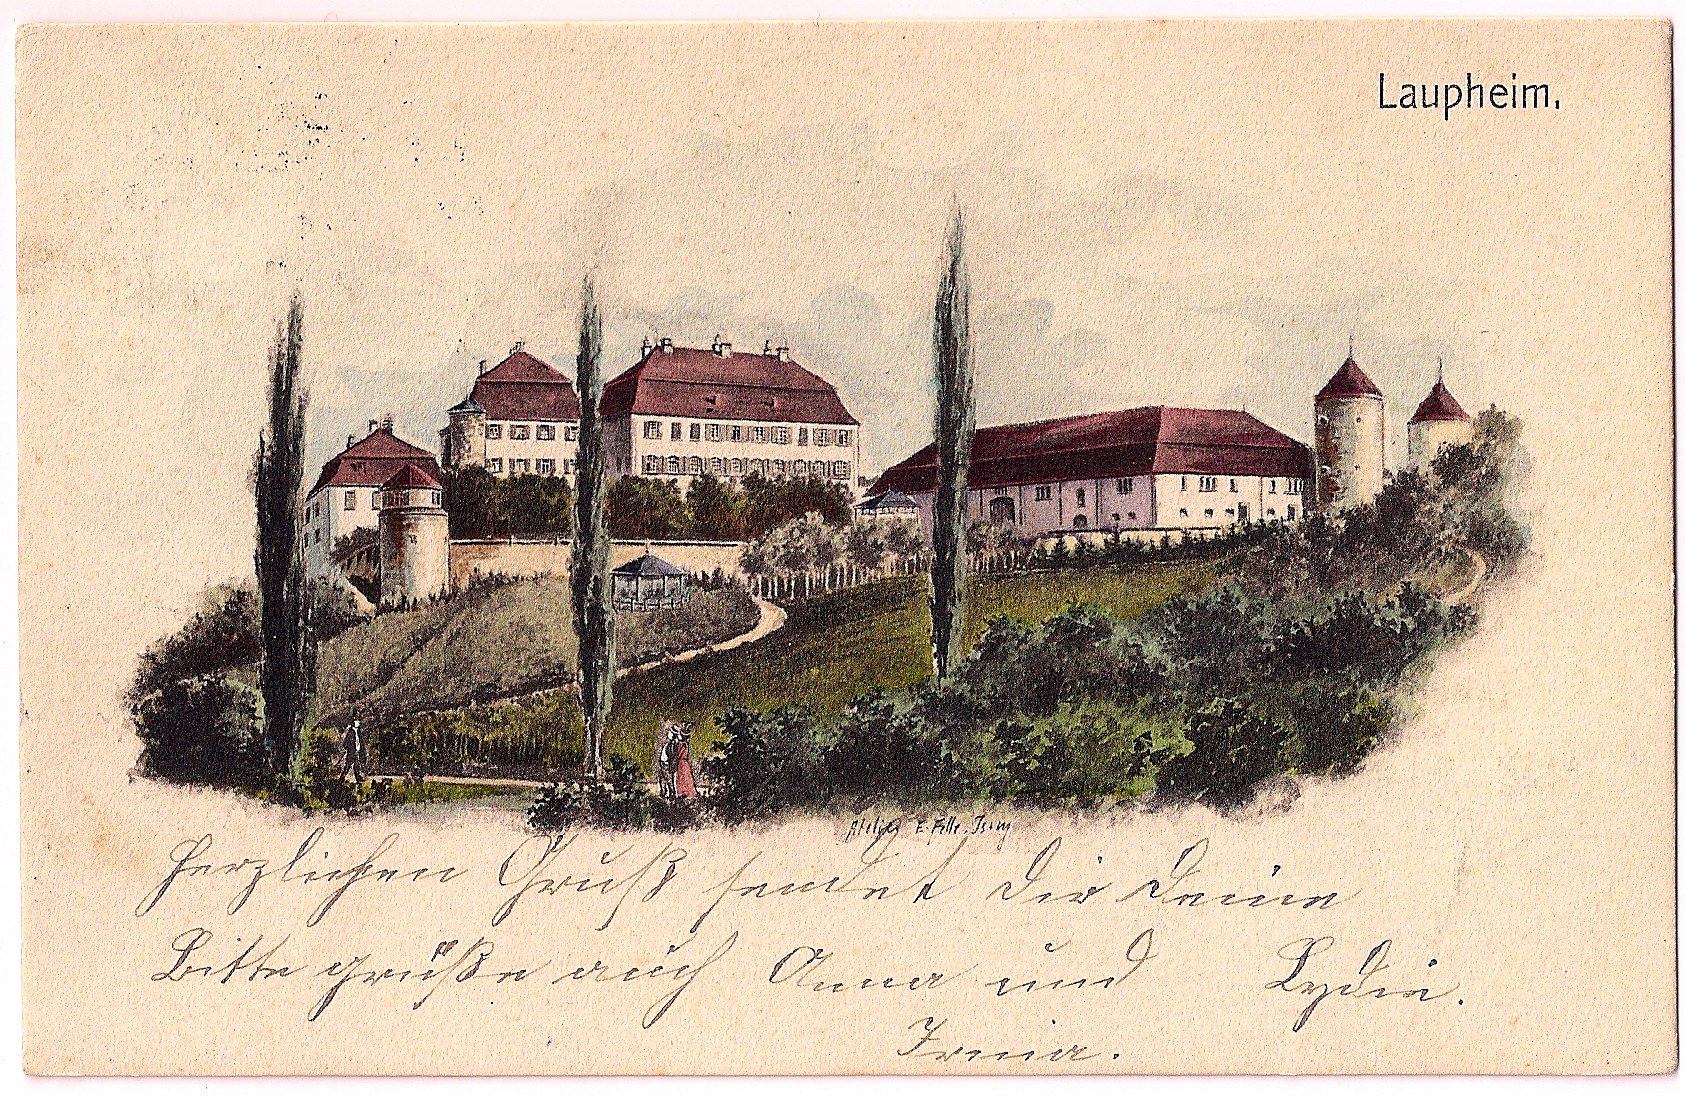 Laupheim.
Atelier E. Felle. Isny
Herzlichen Gruß sendet Dir Deine
Bitte grüße auch Anna und Lydie.